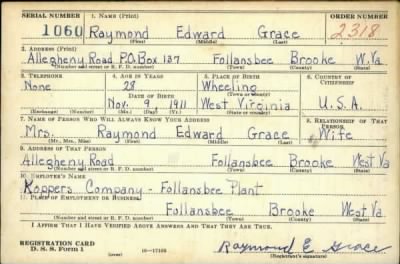 SERIAL NUMBER 1. NAME (Print) ORDER NUMBER
1060 Raymond Edward Grace 2318
(First) (Middle) (Last)
2. ADDRESS (Print)
Allegheny Road P.O. Box 137 Follansbee Brooke W. Va
(Number and street or R. F. D. number) (Town) (County) (State)
3. TELEPHONE 4. AGE IN YEARS 5. PLACE OF BIRTH 6. COUNTRY OF CITIZENSHIP
None 28 Wheeling
DATE OF BIRTH (Town or county)
Nov. 9 1911 West Virginia U.S.A.
(Exchange) (Number) (Mo.) (Day) (Yr.) (State or country)
7. NAME OF PERSON WHO WILL ALWAYS KNOW YOUR ADDRESS 8. RELATIONSHIP OF THAT PERSON
Mrs. Raymond Edward Grace Wife
(Mr., Mrs., Miss) (First) (Middle) (Last)
9. ADDRESS OF THAT PERSON
Allegheny Road Follansbee Brooke West Va
(Number and street or R. F. D. number) (Town) (County) (State)
10. EMPLOYER'S NAME
Koppers Company - Follansbee Plant
11. PLACE OF EMPLOYMENT OR BUSINESS
Follansbee Brooke West Va.
(Number and street or R. F. D. number) (Town) (County) (State)
I AFFIRM THAT I HAVE VERIFIED ABOVE ANSWERS AND THAT THEY ARE TRUE.
REGISTRATION CARD
D. S. S. Form 1 (over) 16-17105 Raymond E Grace
(Registrant's signature)